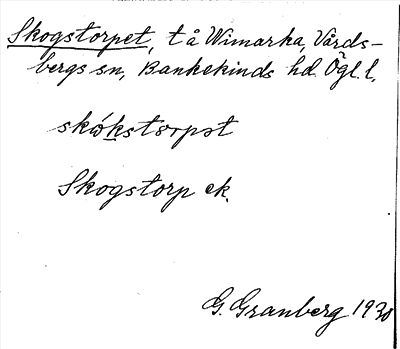 Skogstorpet, t å Wimarka, Vårds-
bergs sn, Bankekinds hd. Ögl. l.
skώkstorpət
Skogstorp ek.
G. Granberg 1930